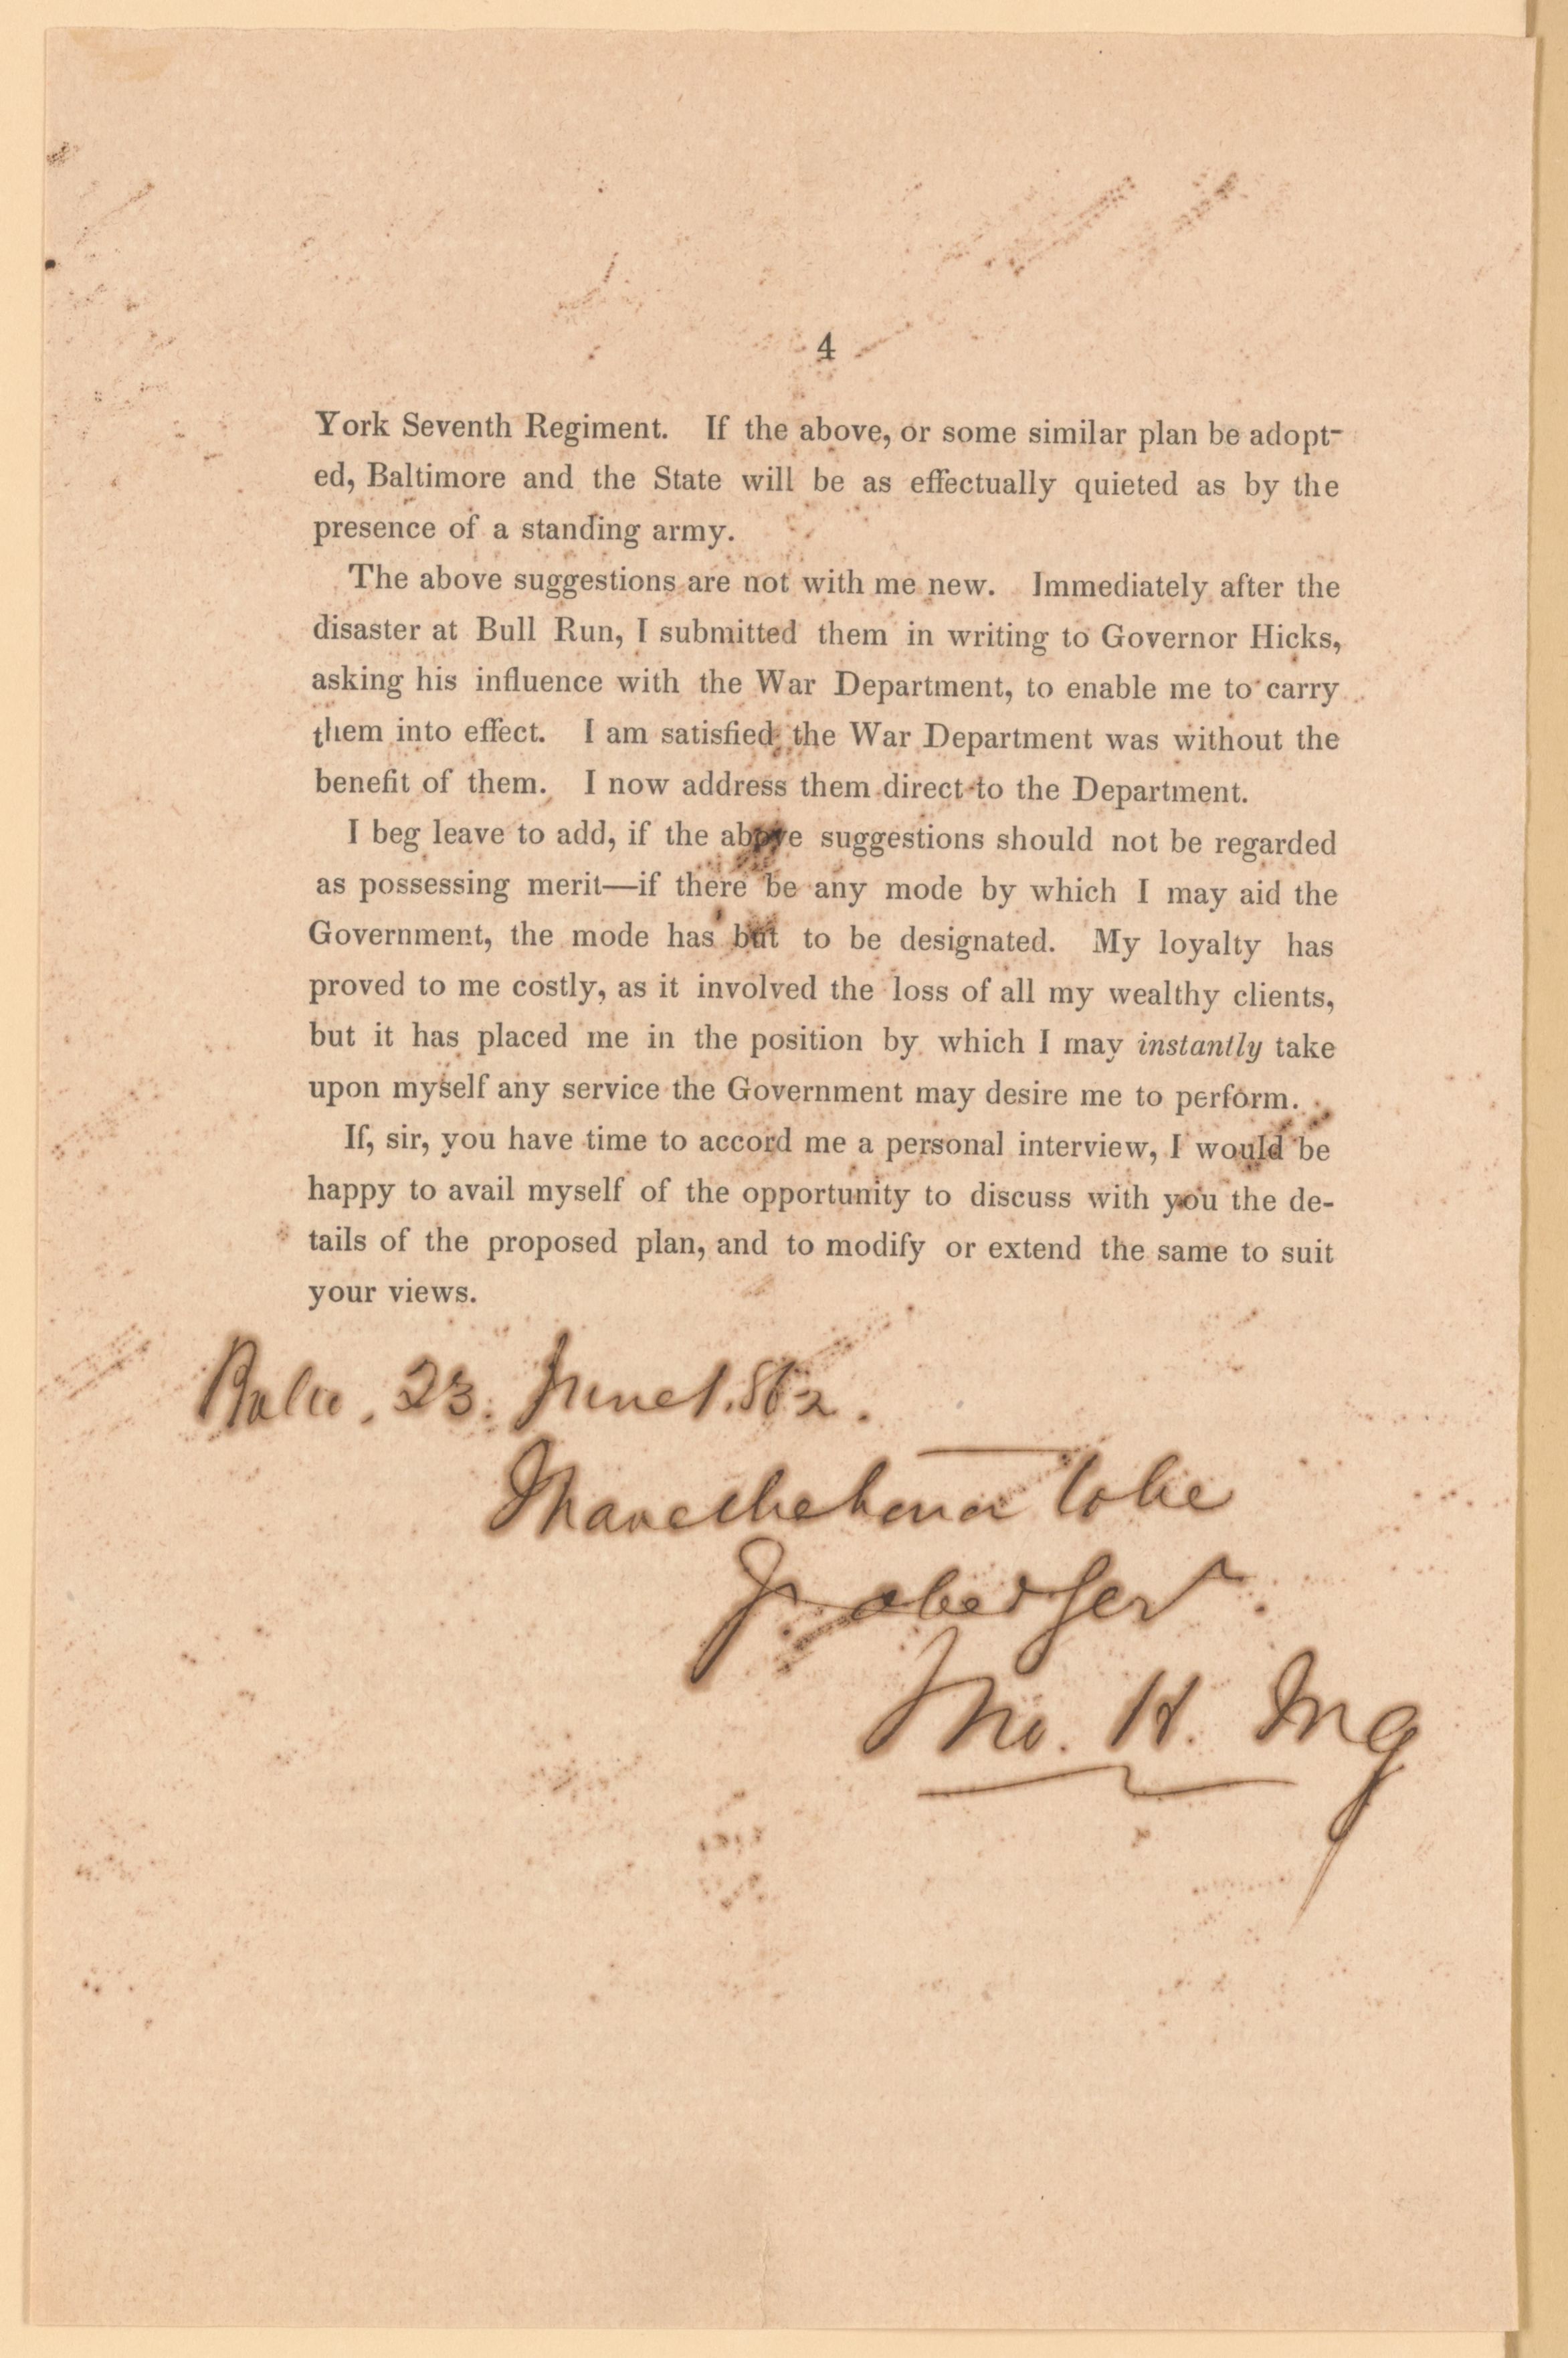 4
York Seventh Regiment. If the above, or some similar plan be adopt-
ed, Baltimore and the State will be as effectually quieted as by the
presence of a standing army.
The above suggestions are not with me new. Immediately after the
disaster at Bull Run, I submitted them in writing to Governor Hicks,
asking his influence with the War Department, to enable me to carry
them into effect. I am satisfied the War Department was without the
benefit of them. I now address them direct to the Department.
I beg leave to add, if the above suggestions should not be regarded
as possessing merit—if there be any mode by which I may aid the
Government, the mode has but to be designated. My loyalty has
proved to me costly, as it involved the loss of all my wealthy clients,
but it has placed me in the position by which I may instantly take
upon myself any service the Government may desire me to perform.
If, sir, you have time to accord me a personal interview, I would be
happy to avail myself of the opportunity to discuss with you the de-
tails of the proposed plan, and to modify or extend the same to suit
your views.
Balto. 23. June 1.862.
I have the honor to be
Yr obed Servt.
H. Ing